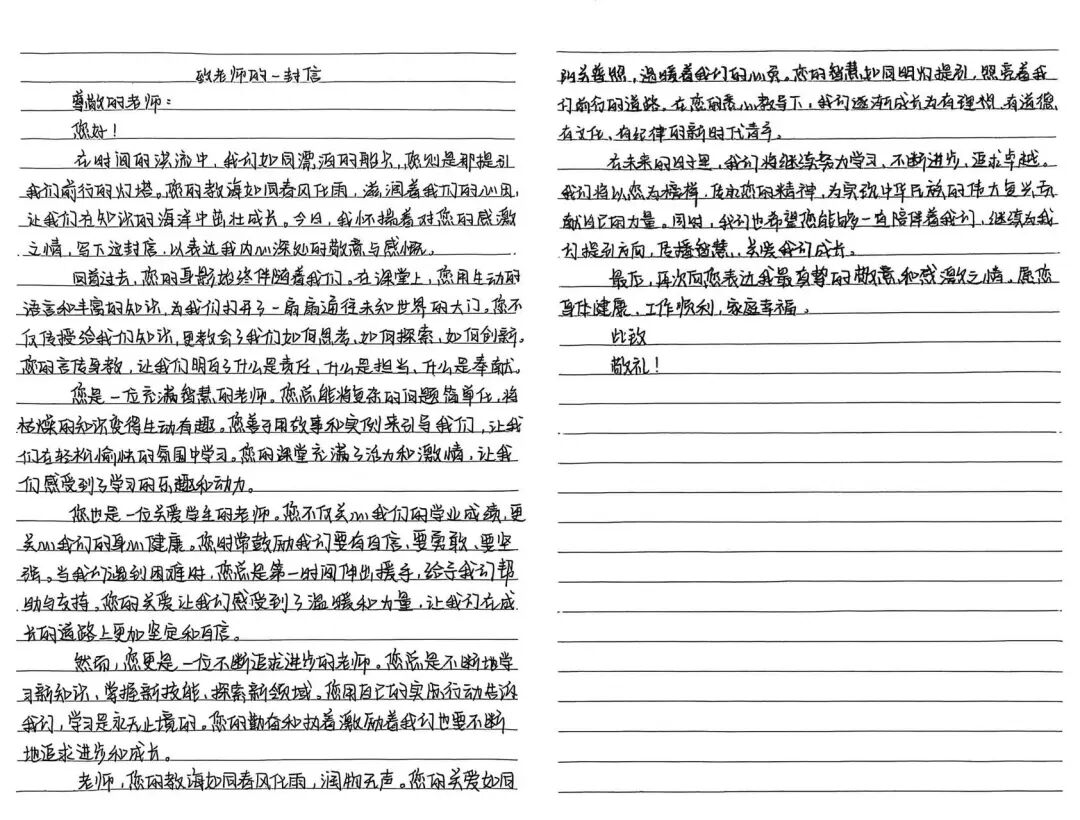 致老师的一封信
尊敬的老师：
您好！
在时间的洪流中，我们如同漂泊的船只，您则是那提引
我们前行的灯塔。您的教诲如同春风化雨，滋润着我们的心田，
让我们在知识的海洋中茁壮成长。今日，我怀揣着对您的感激
之情，写下这封信，以表达我内心深处的敬意与感慨。
回首过去，您的身影始终伴随着我们。在课堂上，您用生动的
语言和丰富的知识，为我们打开了一扇扇通往未知世界的大门。您不
仅传授给我们知识，更教会了我们如何思考，如何探索，如何创新。
您的言传身教，让我们明白了什么是责任，什么是担当，什么是奉献。
您是一位充满智慧的老师。您总能将复杂的问题简单化，将
枯燥的知识变得生动有趣。您善于用故事和实例来引导我们，让我
们在轻松愉快的氛围中学习。您的课堂充满了活力和激情，让我
们感受到了学习的乐趣和动力。
您也是一位关爱学生的老师。您不仅关心我们的学业成绩，更
关心我们的身心健康。您时常鼓励我们要有自信、要勇敢、要坚
强。当我们遇到困难时，您总是第一时间伸出援手，给予我们帮
助与支持。您的关爱让我们感受到了温暖和力量，让我们在成
长的道路上更加坚定和自信。
然而，您更是一位不断追求进步的老师。您总是不断地学
习新知识，掌握新技能，探索新领域。您用自己的实际行动告诉
我们，学习是永无止境的。您的勤奋和执着激励着我们也要不断
地追求进步和成长。
老师，您的教诲如同春风化雨，润物无声。您的关爱如同
阳光普照，温暖着我们的心灵。您的智慧如同明灯提引，照亮着我
们前行的道路。在您的悉心教导下，我们逐渐成长为有理想、有道德、
有文化、有纪律的新时代青年。
在未来的日子里，我们将继续努力学习，不断进步，追求卓越。
我们将以您为榜样，传承您的精神，为实现中华民族的伟大复兴贡
献自己的力量。同时，我们也希望您能够一直陪伴着我们，继续为我
们提引方向，传播智慧，关爱我们成长。
最后，再次向您表达我最真挚的敬意和感激之情，愿您
身体健康、工作顺利，家庭幸福。
此致
敬礼！